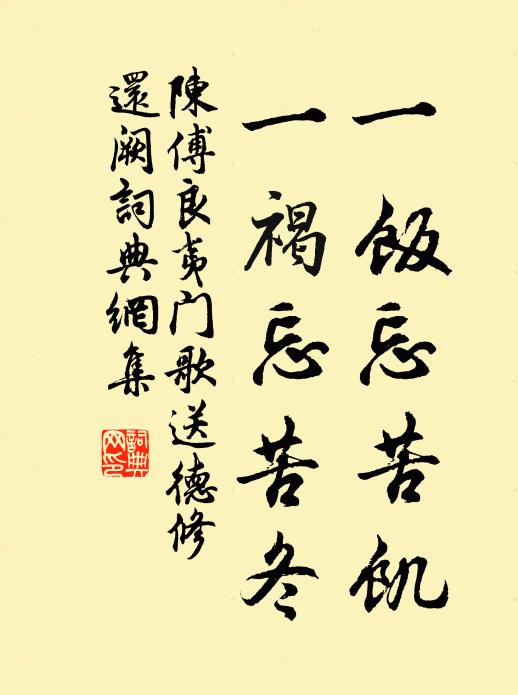 一飯忘苦飢
一褐忘苦冬
陳傅良夷门歌送德修
還闕詞典網集
詞典网印